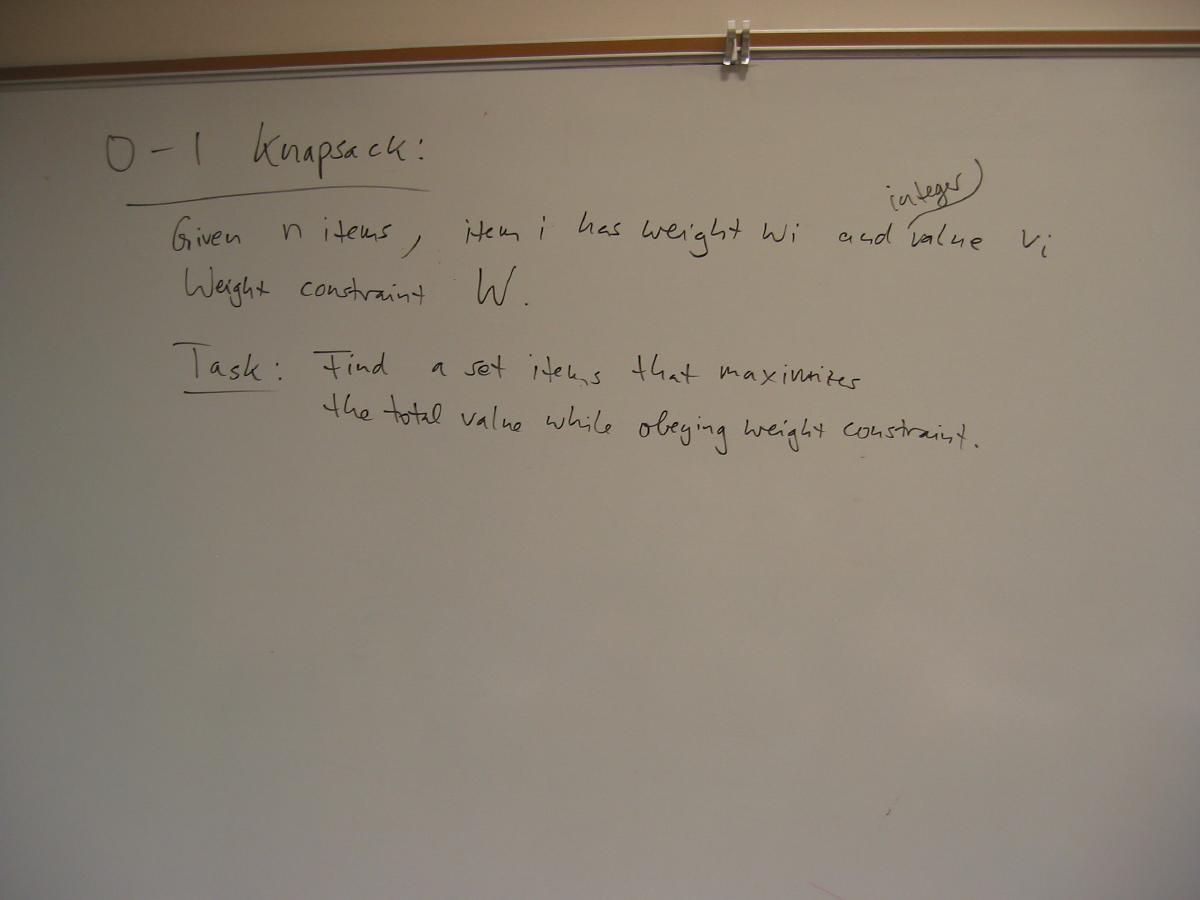 0-1 Knapsack:
Given n items, item i has weight wi and integer value vi
Weight constraint W.
Task: Find a set items that maximizes
the total value while obeying weight constraint.